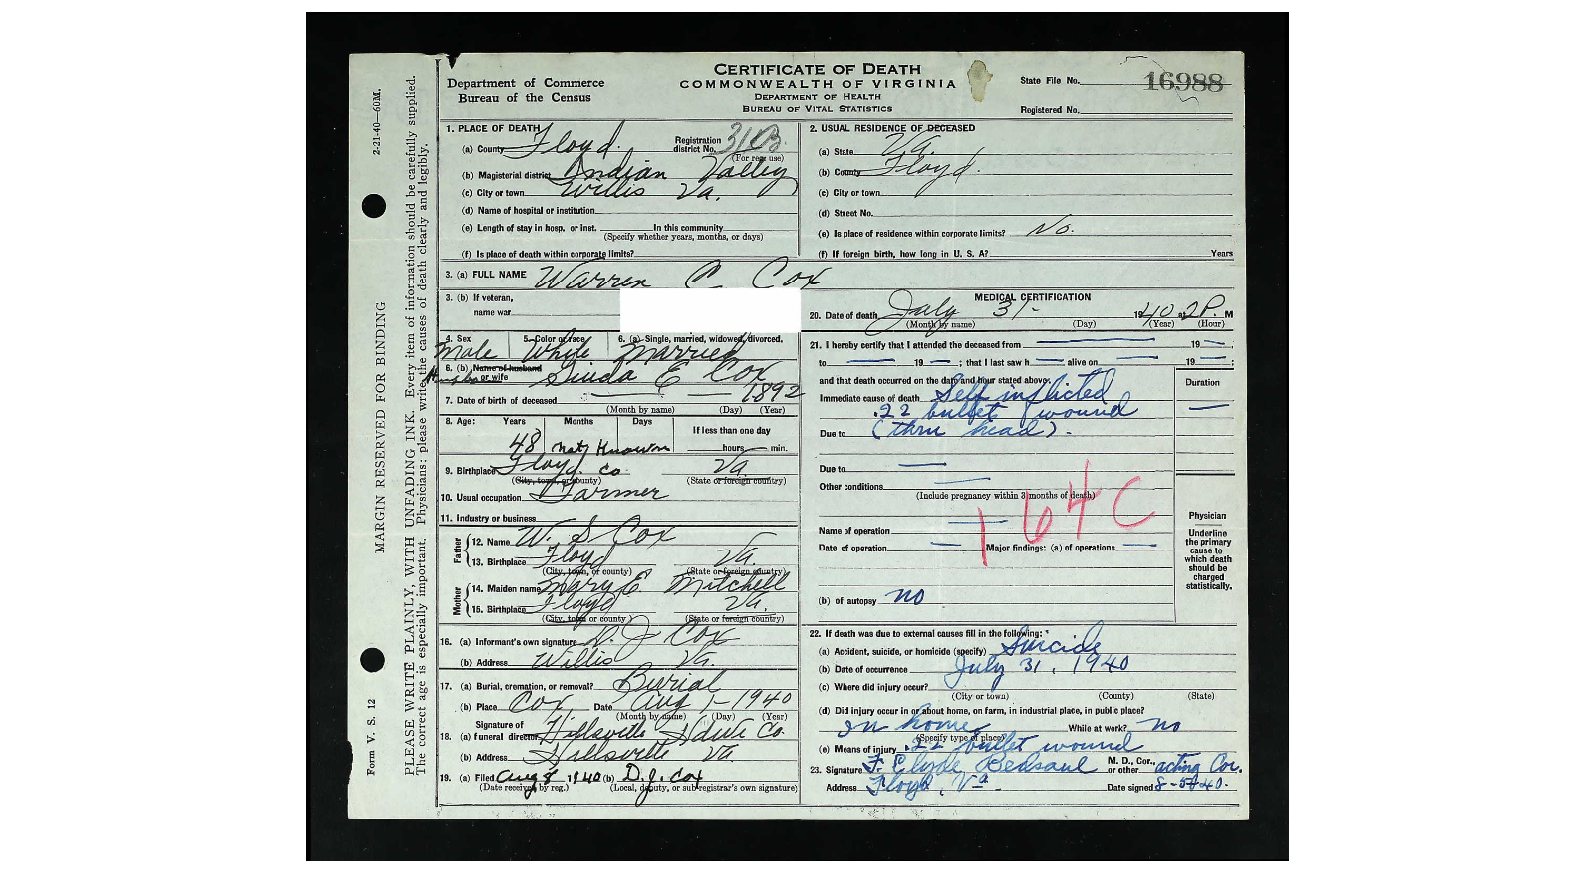 CERTIFICATE OF DEATH
COMMONWEALTH OF VIRGINIA
DEPARTMENT OF HEALTH
BUREAU OF VITAL STATISTICS
Department of Commerce
Bureau of the Census
State File No. 16988
Registered No.
2-21-40—60M.
MARGIN RESERVED FOR BINDING
Form V. S. 12
PLEASE WRITE PLAINLY, WITH UNFADING INK. Every item of information should be carefully supplied.
The correct age is especially important. Physicians: please write the causes of death clearly and legibly.
1. PLACE OF DEATH
(a) County Floyd. Registration district No. 31
(For reg. use)
(b) Magisterial district Indian Valley
(c) City or town Willis Va.
(d) Name of hospital or institution
(e) Length of stay in hosp. or inst. In this community
(Specify whether years, months, or days)
(f) Is place of death within corporate limits?
2. USUAL RESIDENCE OF DECEASED
(a) State Va.
(b) County Floyd.
(c) City or town
(d) Street No.
(e) Is place of residence within corporate limits? No.
(f) If foreign birth, how long in U. S. A? Years
3. (a) FULL NAME Warren C Cox
3. (b) If veteran,
name war
4. Sex 5. Color or race 6. (a) Single, married, widowed, divorced.
Male White Married
6. (b) Name of husband or wife E Cox
7. Date of birth of deceased 1892
(Month by name) (Day) (Year)
8. Age: Years Months Days If less than one day
48 not Known hours min.
9. Birthplace Floyd. Co Va.
(City, town, or county) (State or foreign country)
10. Usual occupation Farmer
11. Industry or business
Father
12. Name W. S Cox
13. Birthplace Floyd Va.
(City, town, or county) (State or foreign country)
Mother
14. Maiden name Mary E. Mitchell
15. Birthplace Floyd Va.
(City, town or county) (State or foreign country)
16. (a) Informant's own signature D. J Cox
(b) Address Willis Va.
17. (a) Burial, cremation, or removal? Burial
(b) Place Cox Date Aug 1-1940
(Month by name) (Day) (Year)
Signature of
18. (a) funeral director Hillsville Co.
(b) Address Hillsville Va.
19. (a) Filed Aug 8 1940 (b) D. J. Cox
(Date received by reg.) (Local, deputy, or sub-registrar's own signature)
MEDICAL CERTIFICATION
20. Date of death July 31- 1940 at 2 P. M
(Month by name) (Day) (Year) (Hour)
21. I hereby certify that I attended the deceased from 19
to 19 ; that I last saw h alive on 19 ;
and that death occurred on the day and hour stated above.
Duration
Immediate cause of death Self inflicted
.22 bullet wound
Due to (thru head).
Due to
Other conditions
(Include pregnancy within 3 months of death)
164C
Name of operation
Date of operation Major findings: (a) of operations
(b) of autopsy no
Physician
Underline
the primary
cause to
which death
should be
charged
statistically.
22. If death was due to external causes fill in the following:
(a) Accident, suicide, or homicide (specify) Suicide
(b) Date of occurrence July 31, 1940
(c) Where did injury occur?
(City or town) (County) (State)
(d) Did injury occur in or about home, on farm, in industrial place, in public place?
In home While at work? no
(Specify type of place)
(e) Means of injury .22 bullet wound
23. Signature F. Clyde Bedsaul M. D., Cor., or other acting Cor.
Address Floyd, Va. Date signed 8-5-40.